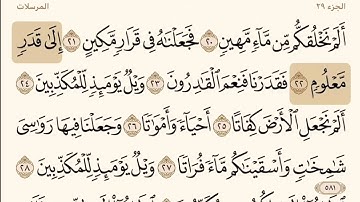 الجزء ٢٩ المرسلات
أَلَمْ نَخْلُقكُّم مِّن مَّآءٍ مَّهِينٍ ٢٠ فَجَعَلْنَٰهُ فِى قَرَارٍ مَّكِينٍ ٢١ إِلَىٰ قَدَرٍ
مَّعْلُومٍ ٢٢ فَقَدَرْنَا فَنِعْمَ ٱلْقَٰدِرُونَ ٢٣ وَيْلٌ يَوْمَئِذٍ لِّلْمُكَذِّبِينَ ٢٤
أَلَمْ نَجْعَلِ ٱلْأَرْضَ كِفَاتًا ٢٥ أَحْيَآءً وَأَمْوَٰتًا ٢٦ وَجَعَلْنَا فِيهَا رَوَٰسِىَ
شَٰمِخَٰتٍ وَأَسْقَيْنَٰكُم مَّآءً فُرَاتًا ٢٧ وَيْلٌ يَوْمَئِذٍ لِّلْمُكَذِّبِينَ ٢٨
٥٨١